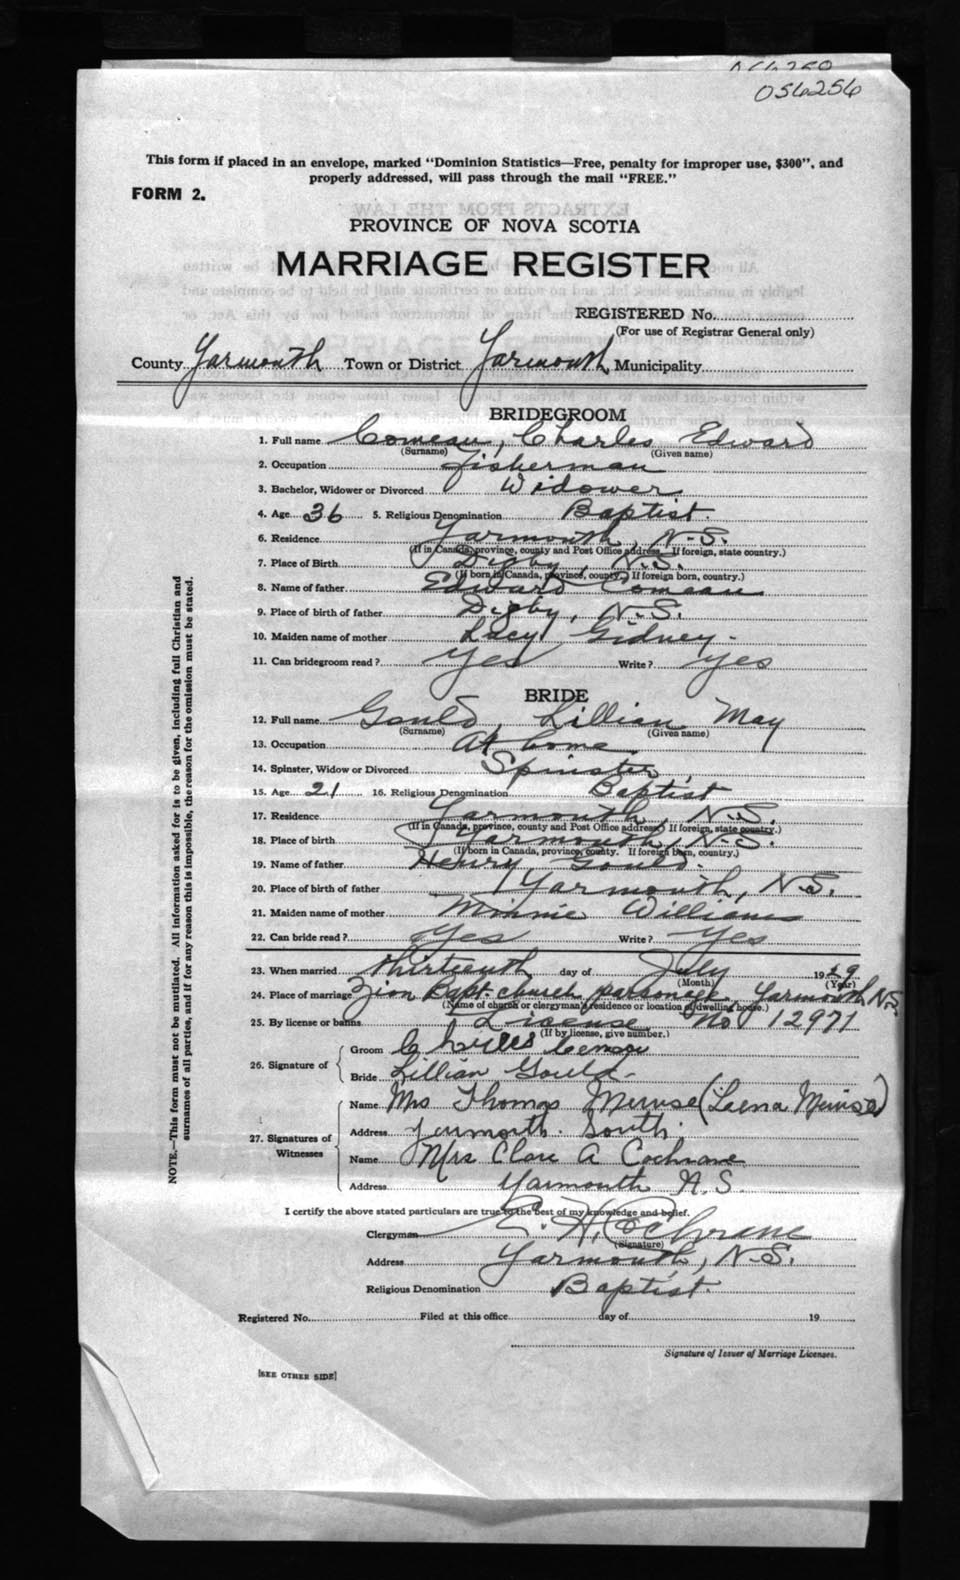 056256
This form if placed in an envelope, marked "Dominion Statistics—Free, penalty for improper use, $300", and
properly addressed, will pass through the mail "FREE."
FORM 2.
PROVINCE OF NOVA SCOTIA
MARRIAGE REGISTER
REGISTERED No.
(For use of Registrar General only)
County Yarmouth Town or District Yarmouth Municipality
BRIDEGROOM
1. Full name Comeau, Charles Edward
(Surname) (Given name)
2. Occupation Fisherman
3. Bachelor, Widower or Divorced Widower
4. Age 36 5. Religious Denomination Baptist.
6. Residence Yarmouth, N.S.
(If in Canada, province, county and Post Office address. If foreign, state country.)
7. Place of Birth Digby, N.S.
(If born in Canada, province, county. If foreign born, country.)
8. Name of father Edward Comeau
9. Place of birth of father Digby, N.S.
10. Maiden name of mother Lucy Gidney-
11. Can bridegroom read? Yes Write? Yes
BRIDE
12. Full name Gould, Lillian May
(Surname) (Given name)
13. Occupation At home
14. Spinster, Widow or Divorced Spinster
15. Age 21 16. Religious Denomination Baptist
17. Residence Yarmouth, N.S.
(If in Canada, province, county and Post Office address. If foreign, state country.)
18. Place of birth Yarmouth, N.S.
(If born in Canada, province, county. If foreign born, country.)
19. Name of father Henry Gould.
20. Place of birth of father Yarmouth, N.S.
21. Maiden name of mother Minnie Williams
22. Can bride read? Yes Write? Yes
23. When married thirteenth day of July 1929
(Month) (Year)
24. Place of marriage Zion Bapt. church parsonage, Yarmouth N.S.
(Name of church or clergyman's residence or location of dwelling house.)
25. By license or banns License No 12971
(If by license, give number.)
26. Signature of
Groom Charles
Bride Lillian Gould-
27. Signatures of Witnesses
Name Mrs Thomas Meuse (Leena Meuse)
Address Yarmouth South.
Name Mrs Clare A Cochrane
Address Yarmouth N.S.
I certify the above stated particulars are true to the best of my knowledge and belief.
Clergyman Cochrane
(Signature)
Address Yarmouth, N.S.
Religious Denomination Baptist.
Registered No. Filed at this office day of 19
Signature of Issuer of Marriage Licenses.
[SEE OTHER SIDE]
NOTE.—This form must not be mutilated. All information asked for is to be given, including full Christian and
surnames of all parties, and if for any reason this is impossible, the reason for the omission must be stated.